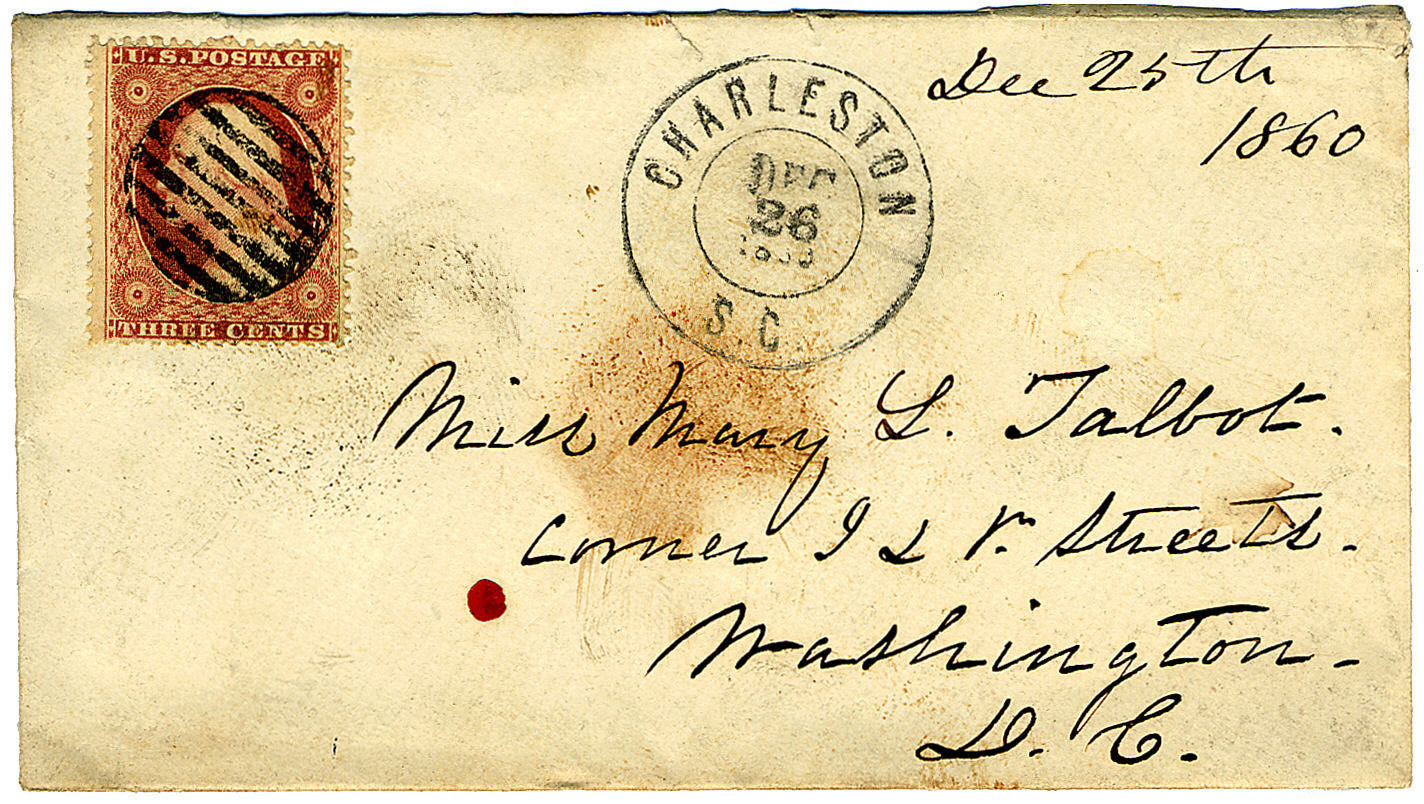 U.S. POSTAGE
THREE CENTS
CHARLESTON
DEC
26
S.C.
Dec 25th
1860
Miss Mary L. Talbot.
Corner I & Streets.
Washington.
D. C.